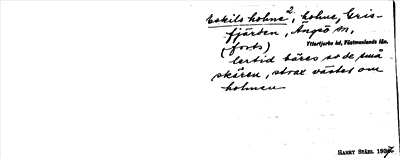 Eskils holme², holme, Gris-
fjärden, Ängsö sn,
(forts) Yttertjurbo hd, Västmanlands län.
lertid bäres so de små
skären, strax väster om
holmen
HARRY STÅHL 1937